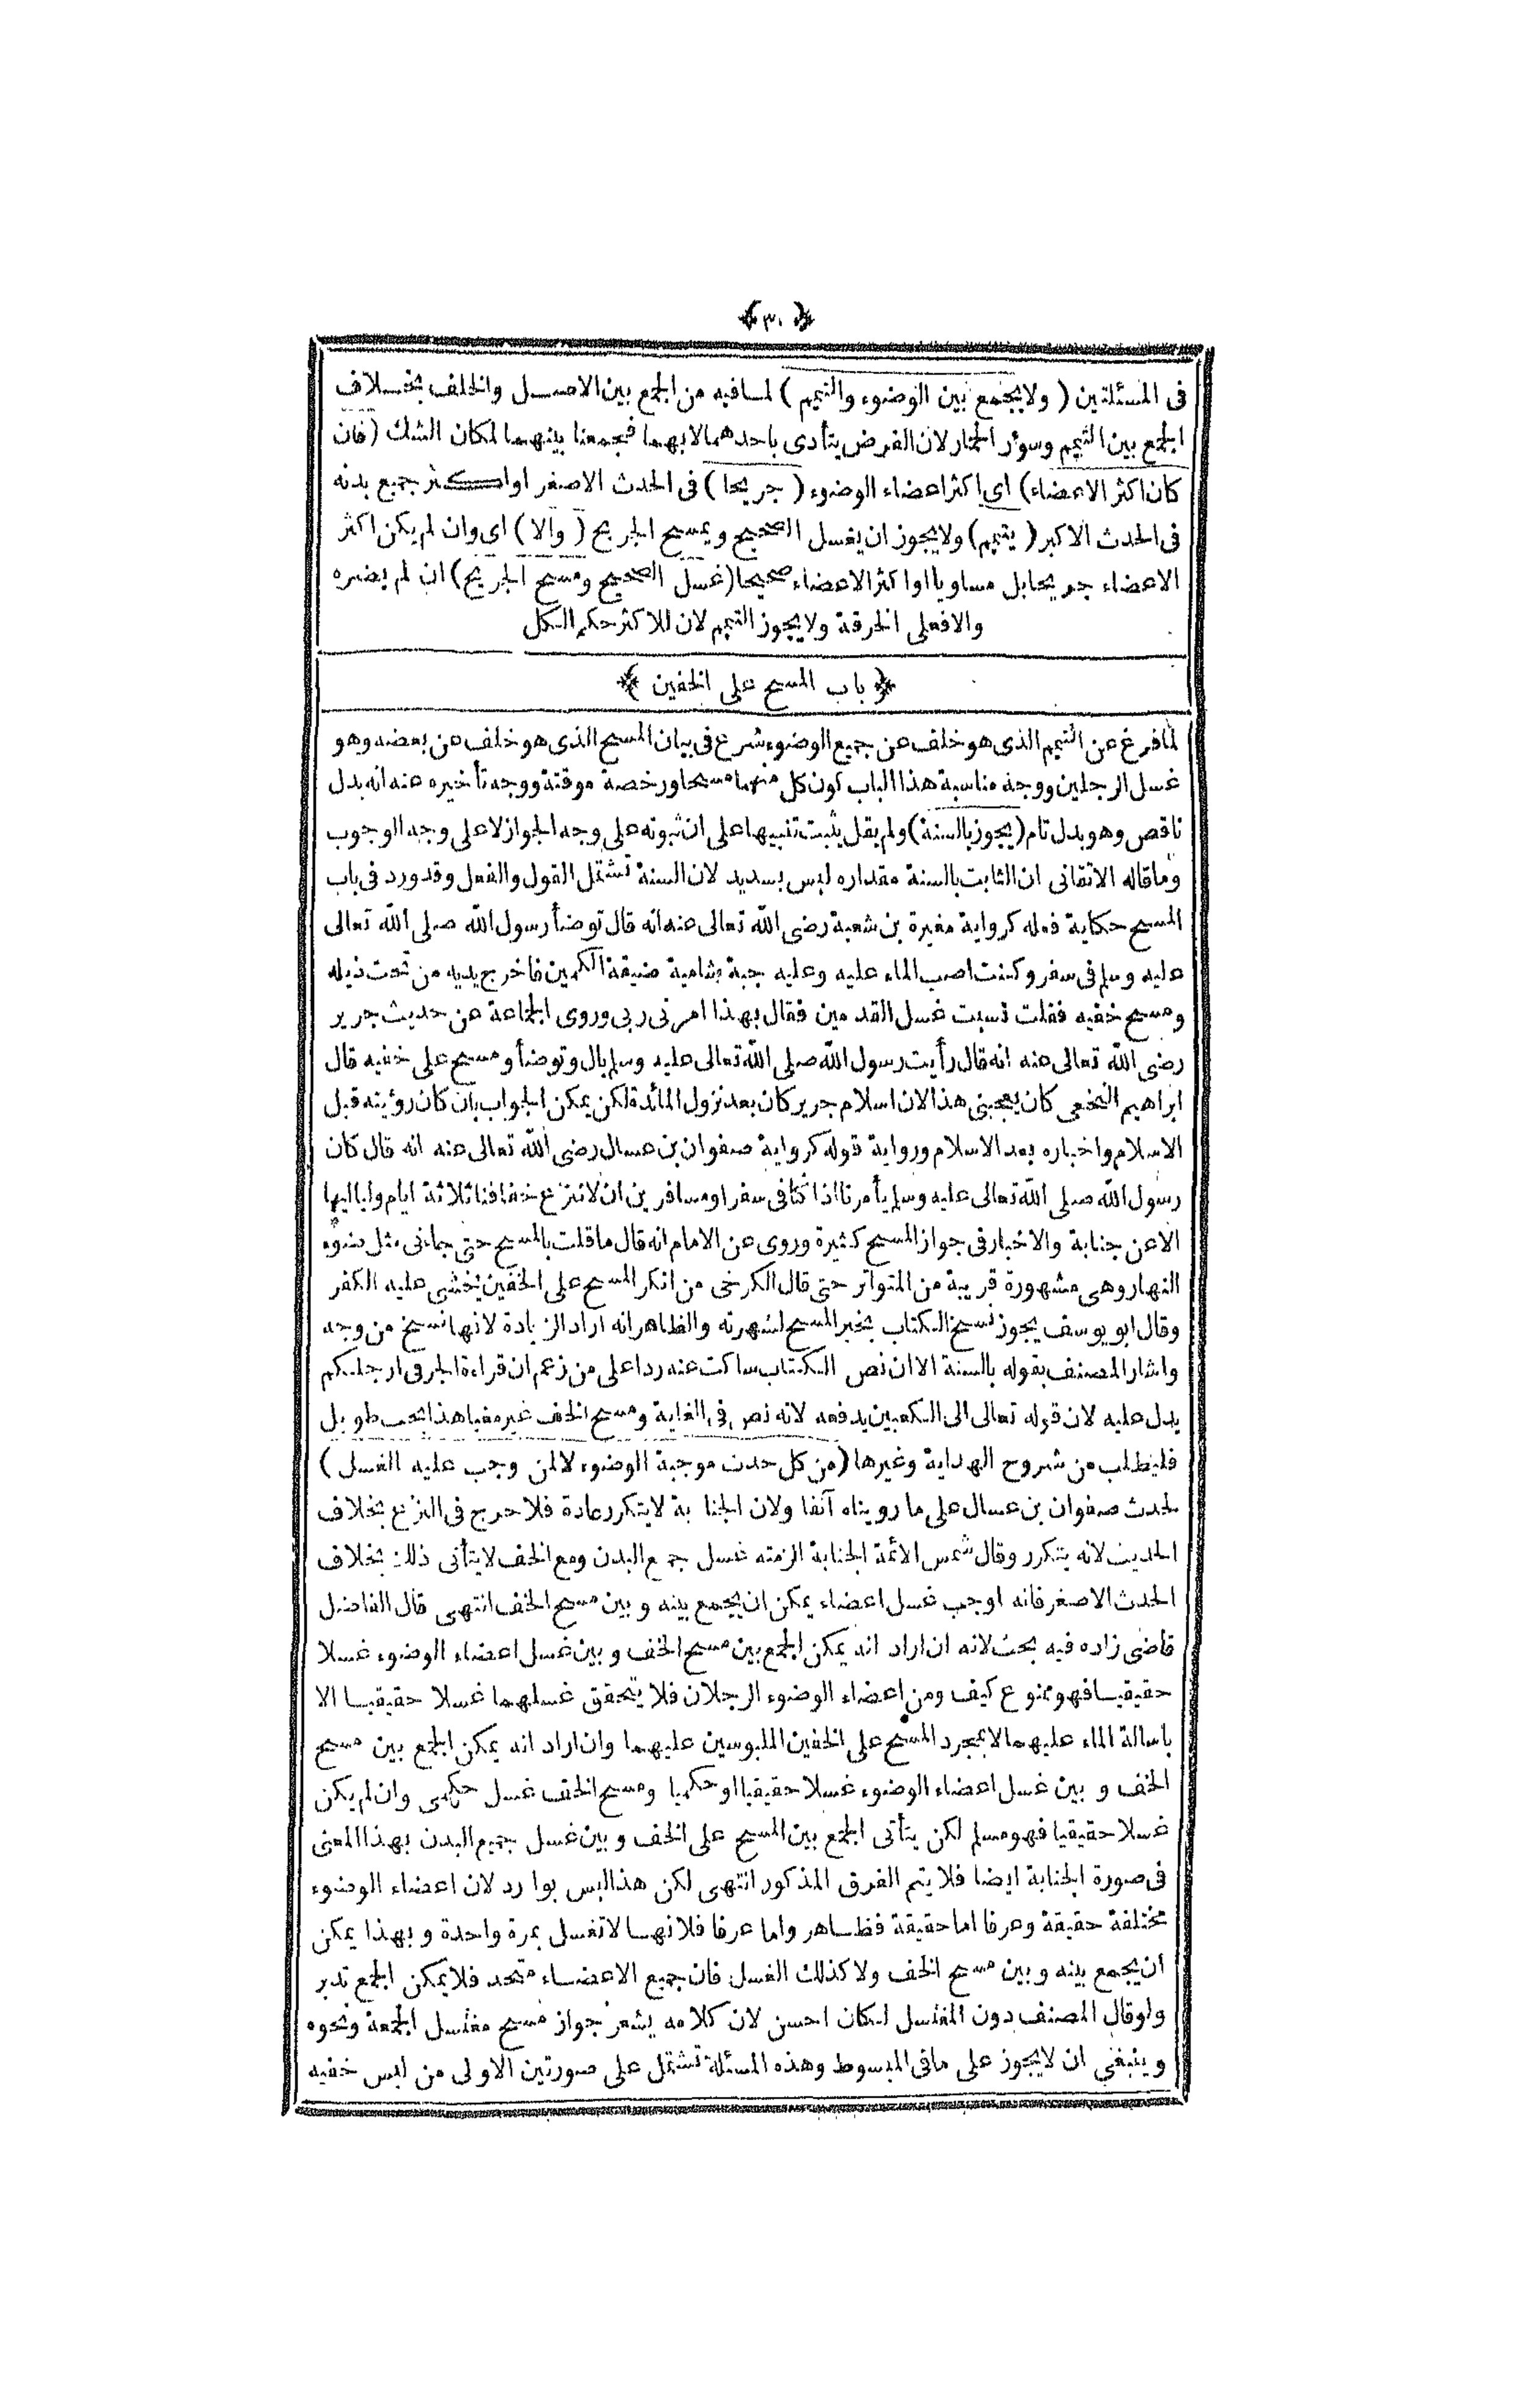 ﴿ ٣٠ ﴾
فى المسئلتين ( ولا يجمع بين الوضوء والتيمم ) لما فيه من الجمع بين الاصل والخلف بخلاف
الجمع بين التيمم وسؤر الحمار لان الفرض يتأدى باحدهما لا بهما فجمعنا بينهما لمكان الشك ( فان
كان اكثر الاعضاء ) اى اكثر اعضاء الوضوء ( جريحا ) فى الحدث الاصغر او اكثر جميع بدنه
فى الحدث الاكبر ( يتيمم ) ولا يجوز ان يغسل الصحيح ويمسح الجريح ( والا ) اى وان لم يكن اكثر
الاعضاء جريحا بل مساويا او اكثر الاعضاء صحيحا ( غسل الصحيح ومسح الجريح ) ان لم يضره
والا فعلى الخرقة ولا يجوز التيمم لان للاكثر حكم الكل
﴿ باب المسح على الخفين ﴾
لما فرغ عن التيمم الذى هو خلف عن جميع الوضوء شرع فى بيان المسح الذى هو خلف عن بعضه وهو
غسل الرجلين ووجه مناسبة هذا الباب كون كل منهما مسحا ورخصة موقتة ووجه تأخيره عنه انه بدل
ناقص وهو بدل تام ( يجوز بالسنة ) ولم يقل يثبت تنبيها على ان ثبوته على وجه الجواز لا على وجه الوجوب
وما قاله الاتقانى ان الثابت بالسنة مقداره ليس بسديد لان السنة تشتمل القول والفعل وقد ورد فى باب
المسح حكاية فعله كرواية مغيرة بن شعبة رضى الله تعالى عنه انه قال توضأ رسول الله صلى الله تعالى
عليه وسلم فى سفر وكنت اصب الماء عليه وعليه جبة شامية ضيقة الكمين فاخرج يديه من تحت ذيله
ومسح خفيه فقلت نسيت غسل القدمين فقال بهذا امرنى ربى وروى الجماعة عن حديث جرير
رضى الله تعالى عنه انه قال رأيت رسول الله صلى الله تعالى عليه وسلم بال وتوضأ ومسح على خفيه قال
ابراهيم النخعى كان يعجبنى هذا لان اسلام جرير كان بعد نزول المائدة لكن يمكن الجواب بان كان رؤيته قبل
الاسلام واخباره بعد الاسلام ورواية قوله كرواية صفوان بن عسال رضى الله تعالى عنه انه قال كان
رسول الله صلى الله تعالى عليه وسلم يأمرنا اذا كنا فى سفر او مسافرين ان لا ننزع خفافنا ثلاثة ايام ولياليها
الا عن جنابة والاخبار فى جواز المسح كثيرة وروى عن الامام انه قال ما قلت بالمسح حتى جاءنى مثل ضوء
النهار وهى مشهورة قريبة من المتواتر حتى قال الكرخى من انكر المسح على الخفين يخشى عليه الكفر
وقال ابو يوسف يجوز نسخ الكتاب بخبر المسح لشهرته والظاهر انه اراد الزيادة لانها نسخ من وجه
واشار المصنف بقوله بالسنة الا ان نص الكتاب ساكت عنه ردا على من زعم ان قراءة الجر فى ارجلكم
يدل عليه لان قوله تعالى الى الكعبين يدفعه لانه نص فى الغاية ومسح الخف غير مغيا هذا بحث طويل
فليطلب من شروح الهداية وغيرها ( من كل حدث موجبة الوضوء لا لمن وجب عليه الغسل )
لحدث صفوان بن عسال على ما رويناه آنفا ولان الجنابة لا يتكرر عادة فلا حرج فى النزع بخلاف
الحديث لانه يتكرر وقال شمس الائمة الجنابة الزمته غسل جميع البدن ومع الخف لا يتأتى ذلك بخلاف
الحدث الاصغر فانه اوجب غسل اعضاء يمكن ان يجمع بينه وبين مسح الخف انتهى قال الفاضل
قاضى زاده فيه بحث لانه ان اراد انه يمكن الجمع بين مسح الخف وبين غسل اعضاء الوضوء غسلا
حقيقيا فهو ممنوع كيف ومن اعضاء الوضوء الرجلان فلا يتحقق غسلهما غسلا حقيقيا الا
باسالة الماء عليهما لا بمجرد المسح على الخفين الملبوسين عليهما وان اراد انه يمكن الجمع بين مسح
الخف وبين غسل اعضاء الوضوء غسلا حقيقيا او حكميا ومسح الخف غسل حكمى وان لم يكن
غسلا حقيقيا فهو مسلم لكن يتأتى الجمع بين المسح على الخف وبين غسل جميع البدن بهذا المعنى
فى صورة الجنابة ايضا فلا يتم الفرق المذكور انتهى لكن هذا ليس بوارد لان اعضاء الوضوء
مختلفة حقيقة وعرفا اما حقيقة فظاهر واما عرفا فلانها لا تغسل بمرة واحدة وبهذا يمكن
ان يجمع بينه وبين مسح الخف ولا كذلك الغسل فان جميع الاعضاء متحد فلا يمكن الجمع تدبر
ولو قال المصنف دون المغتسل لكان احسن لان كلامه يشعر جواز مسح مغتسل الجمعة ونحوه
وينبغى ان لا يجوز على ما فى المبسوط وهذه المسئلة تشتمل على صورتين الاولى من لبس خفيه